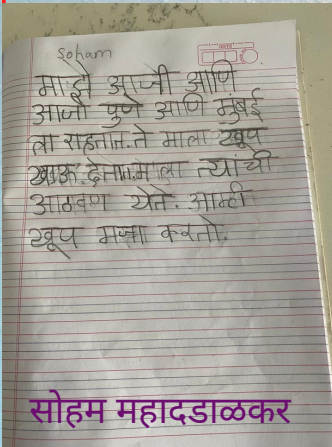 soham
माझे आजी आणि
आजो पुणे आणि मुंबई
ला राहतात. ते माला खूप
खाऊ देतात. माला त्यांची
आठवण येते. आम्ही
खूप मज्जा करतो.
सोहम महादडाळकर